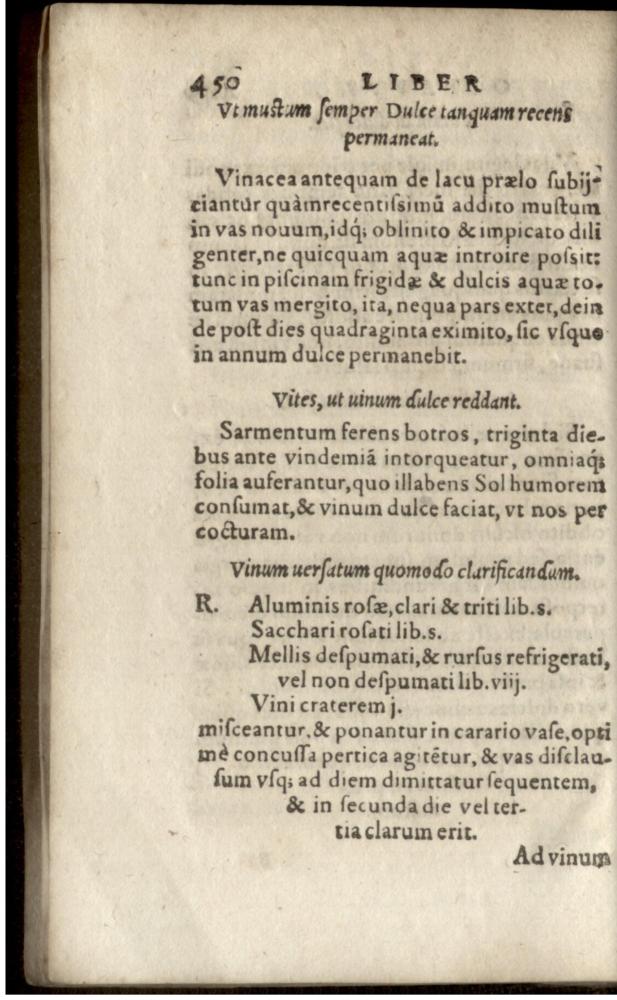 450 LIBER
Vt mustum ſemper Dulce tanquam recens
permaneat.
Vinacea antequam de lacu prælo ſubij-
ciantur quàm recentiſsimū addito muſtum
in vas nouum, idq́; oblinito & impicato dili
genter, ne quicquam aquæ introire poſsit:
tunc in piſcinam frigidæ & dulcis aquæ to-
tum vas mergito, ita, nequa pars extet, dein
de poſt dies quadraginta eximito, ſic vſque
in annum dulce permanebit.
Vites, ut uinum dulce reddant.
Sarmentum ferens botros, triginta die-
bus ante vindemiā intorqueatur, omniaq́;
folia auferantur, quo illabens Sol humorem
conſumat, & vinum dulce faciat, vt nos per
cocturam.
Vinum uerſatum quomodo clarificandum.
R. Aluminis roſæ, clari & triti lib.s.
Sacchari roſati lib.s.
Mellis deſpumati, & rurſus refrigerati,
vel non deſpumati lib.viij.
Vini craterem j.
miſceantur, & ponantur in carario vaſe, opti
mè concuſſa pertica agitētur, & vas diſclau-
ſum vſq; ad diem dimittatur ſequentem,
& in ſecunda die vel ter-
tia clarum erit.
Ad vinum